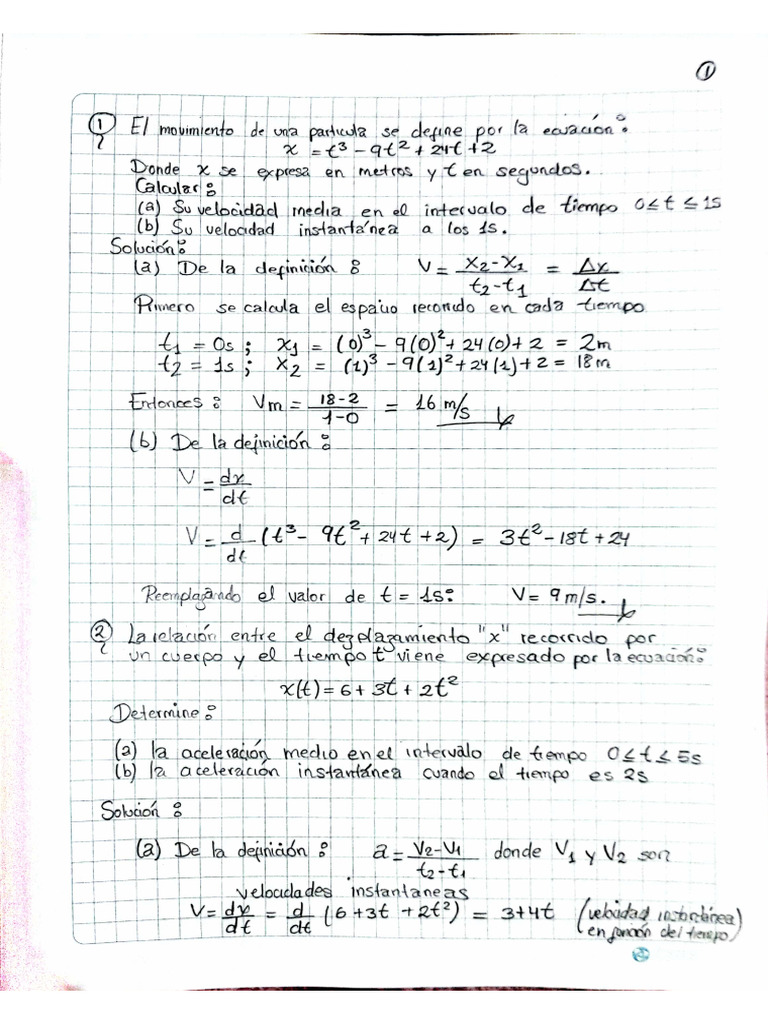 1
1) El movimiento de una particula se define por la ecuación:
x = t³ - 9t² + 24t + 2
Donde x se expresa en metros y t en segundos.
Calcular:
(a) Su velocidad media en el intervalo de tiempo 0 ≤ t ≤ 1s
(b) Su velocidad instantánea a los 1s.
Solución:
(a) De la definición : V = x2-x1 / t2-t1 = Δx / Δt
Primero se calcula el espacio recorrido en cada tiempo
t1 = 0s ; x1 = (0)³ - 9(0)² + 24(0) + 2 = 2m
t2 = 1s ; x2 = (1)³ - 9(1)² + 24(1) + 2 = 18m
Entonces : Vm = 18-2 / 1-0 = 16 m/s
(b) De la definición :
V = dx / dt
V = d/dt (t³ - 9t² + 24t + 2) = 3t² - 18t + 24
Reemplazando el valor de t = 1s: V = 9 m/s.
2) La relación entre el dezplazamiento "x" recorrido por
un cuerpo y el tiempo t viene expresado por la ecuación:
x(t) = 6 + 3t + 2t²
Determine :
(a) la aceleración medio en el intervalo de tiempo 0 ≤ t ≤ 5s
(b) la aceleración instantánea cuando el tiempo es 2s
Solución :
(a) De la definición : a = V2-V1 / t2-t1 donde V1 y V2 son
velocidades instantaneas
V = dx/dt = d/dt (6 + 3t + 2t²) = 3+4t (velocidad instantánea)
en función del tiempo)